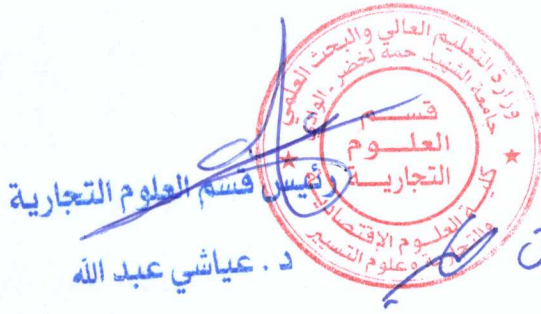 وزارة التعليم العالي والبحث العلمي
جامعة الشهيد حمه لخضر - الوادي
قســـم
العلـــوم
التجاريـــة
كلية العلــوم الإقتصادية
والتجارية وعلوم التسيير
رئيس قسم العلوم التجارية
د. عياشي عبد الله